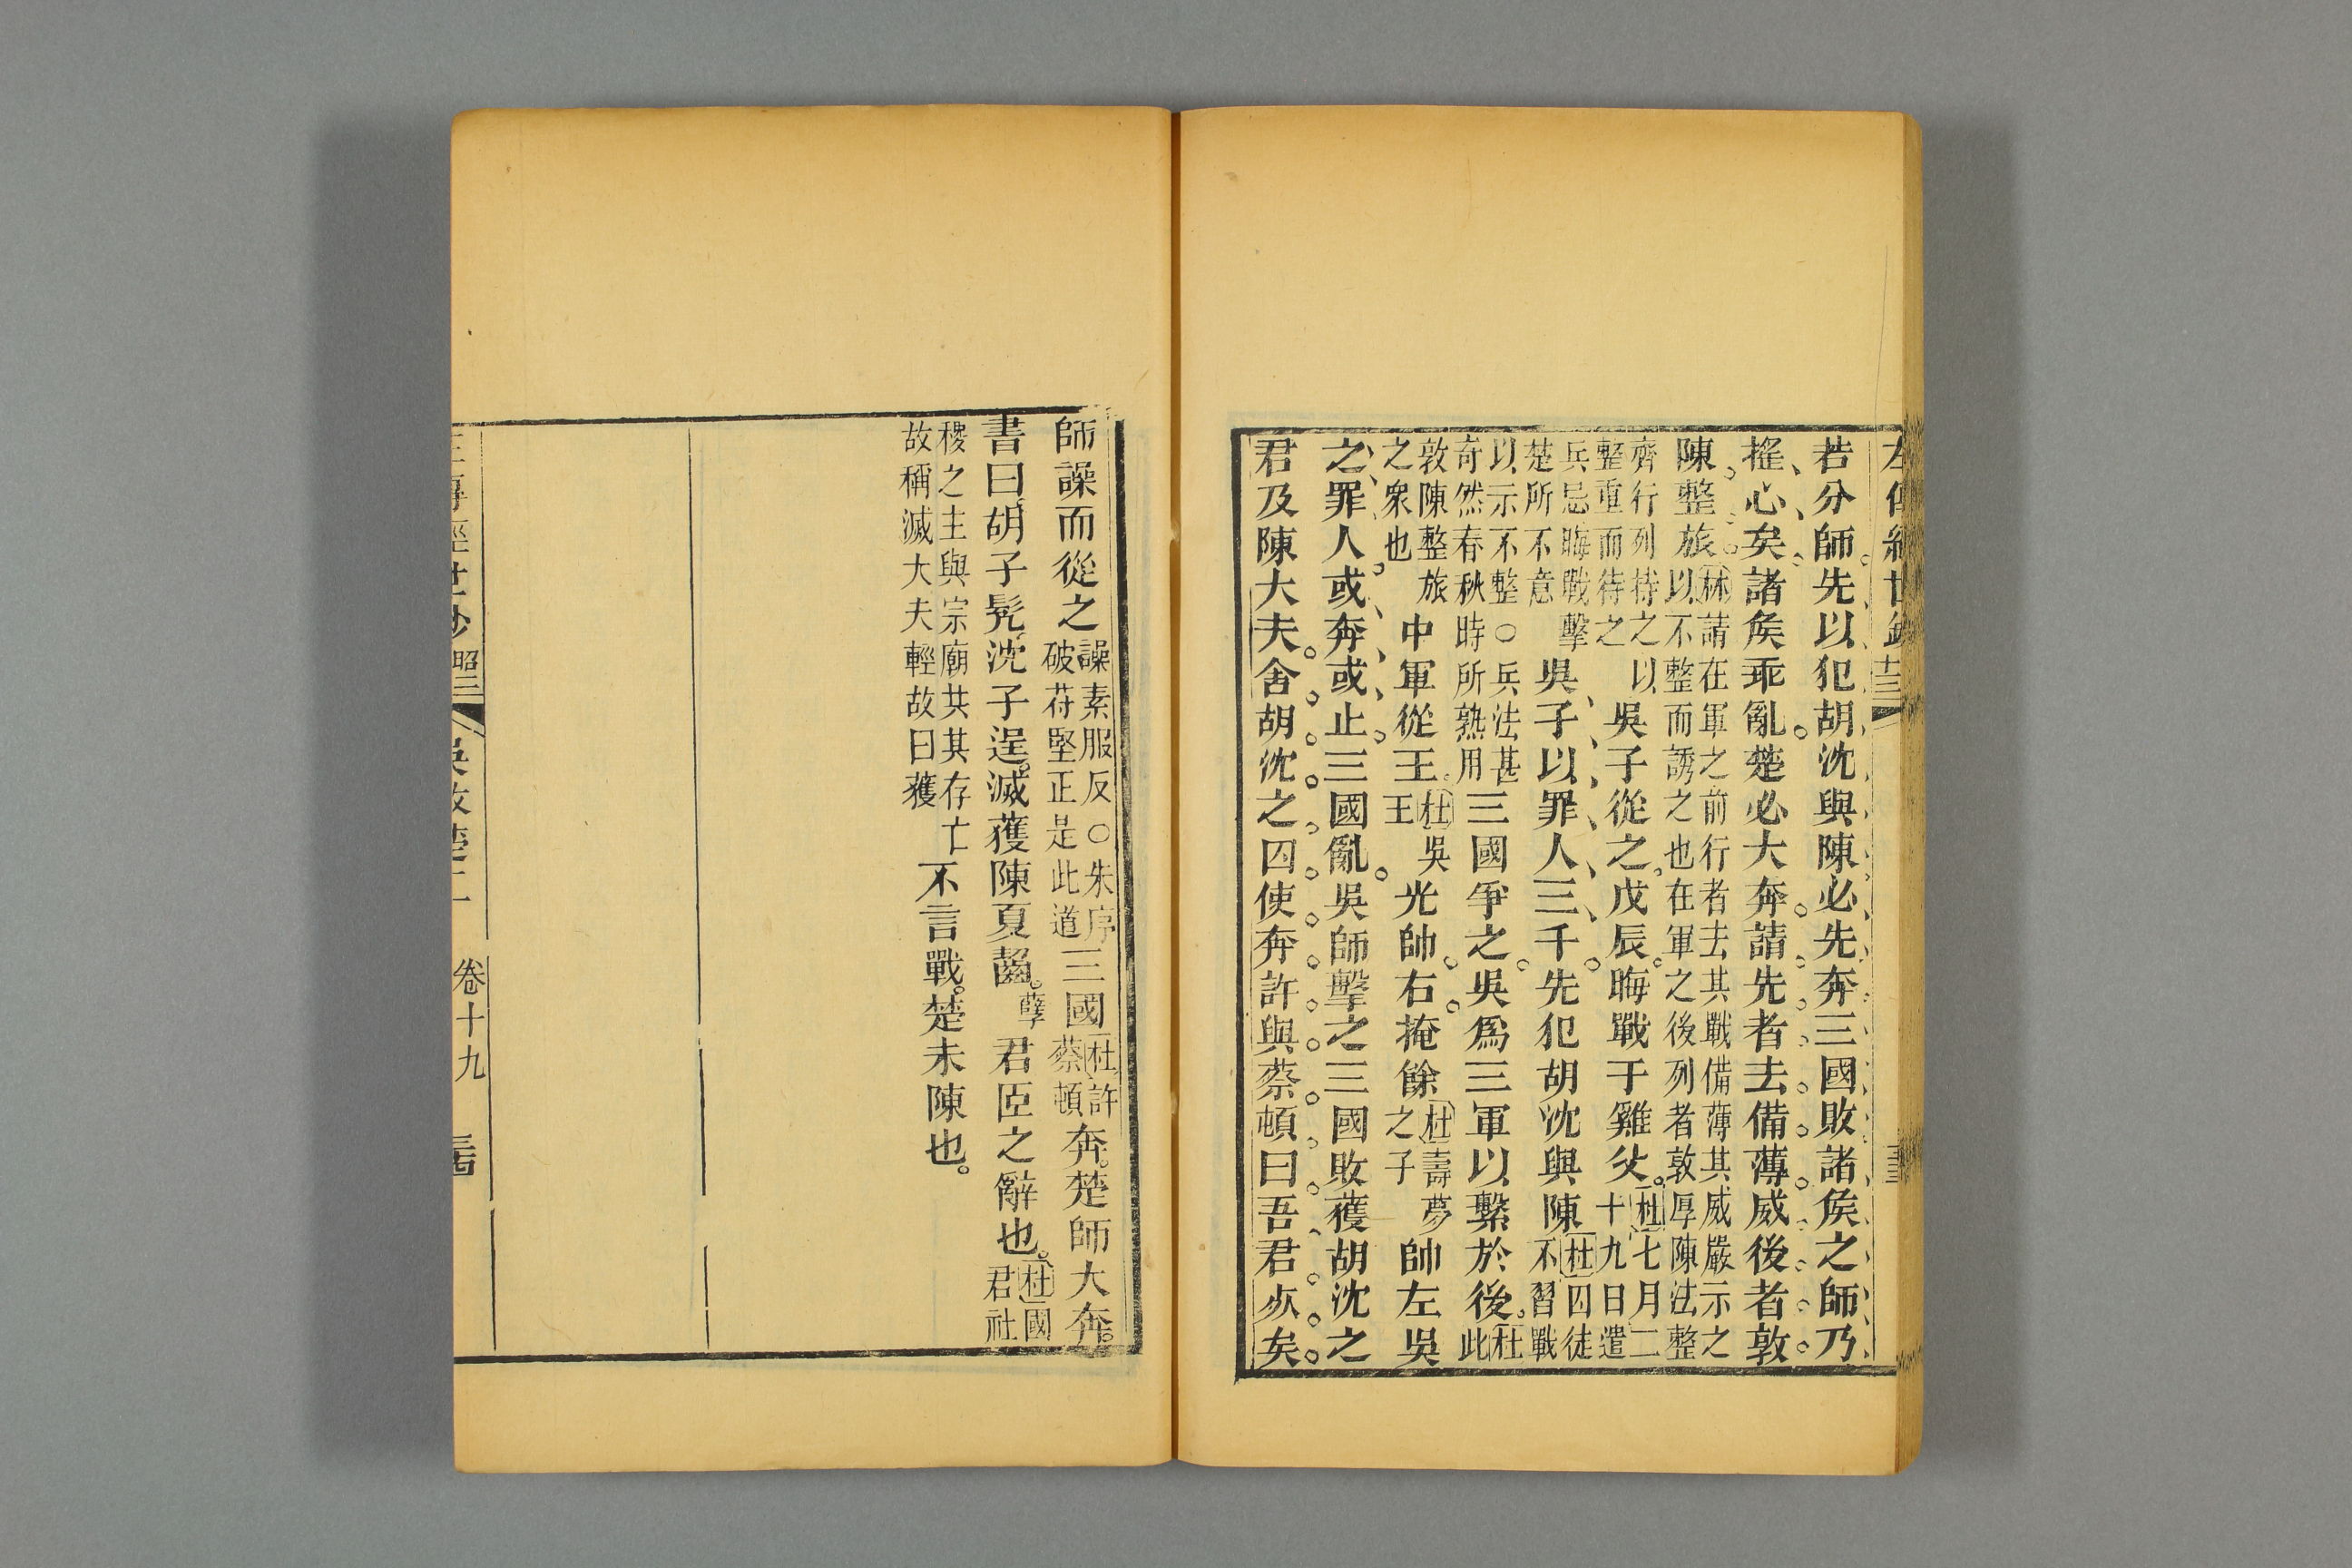 若分師先以犯胡沈與陳必先奔三國敗諸矦之師乃
搖心矣諸矦乖亂楚必大奔請先者去備薄威後者敦
陳整旅林請在軍之前行者去其戰備薄其威嚴示之
以不整而誘之也在軍之後列者敦厚陳法整
齊行列持之以
整重而待之吳子從之戊辰晦戰于雞父杜七月二
十九日遣
兵忌晦戰擊
楚所不意吳子以罪人三千先犯胡沈與陳杜囚徒
不習戰
以示不整○兵法甚
奇然春秋時所熟用三國爭之吳爲三軍以繫於後杜
此
敦陳整旅
之衆也中軍從王杜吳
王光帥右掩餘杜壽夢
之子帥左吳
之罪人或奔或止三國亂吳師擊之三國敗獲胡沈之
君及陳大夫舍胡沈之囚使奔許與蔡頓曰吾君㱙矣
師譟而從之譟素服反○朱序
破苻堅正是此道三國杜許
蔡頓奔楚師大奔
書曰胡子髡沈子逞滅獲陳夏齧孽君臣之辭也杜國
君社
稷之主與宗廟共其存亡
故稱滅大夫輕故曰獲不言戰楚未陳也
昭三
卷十九